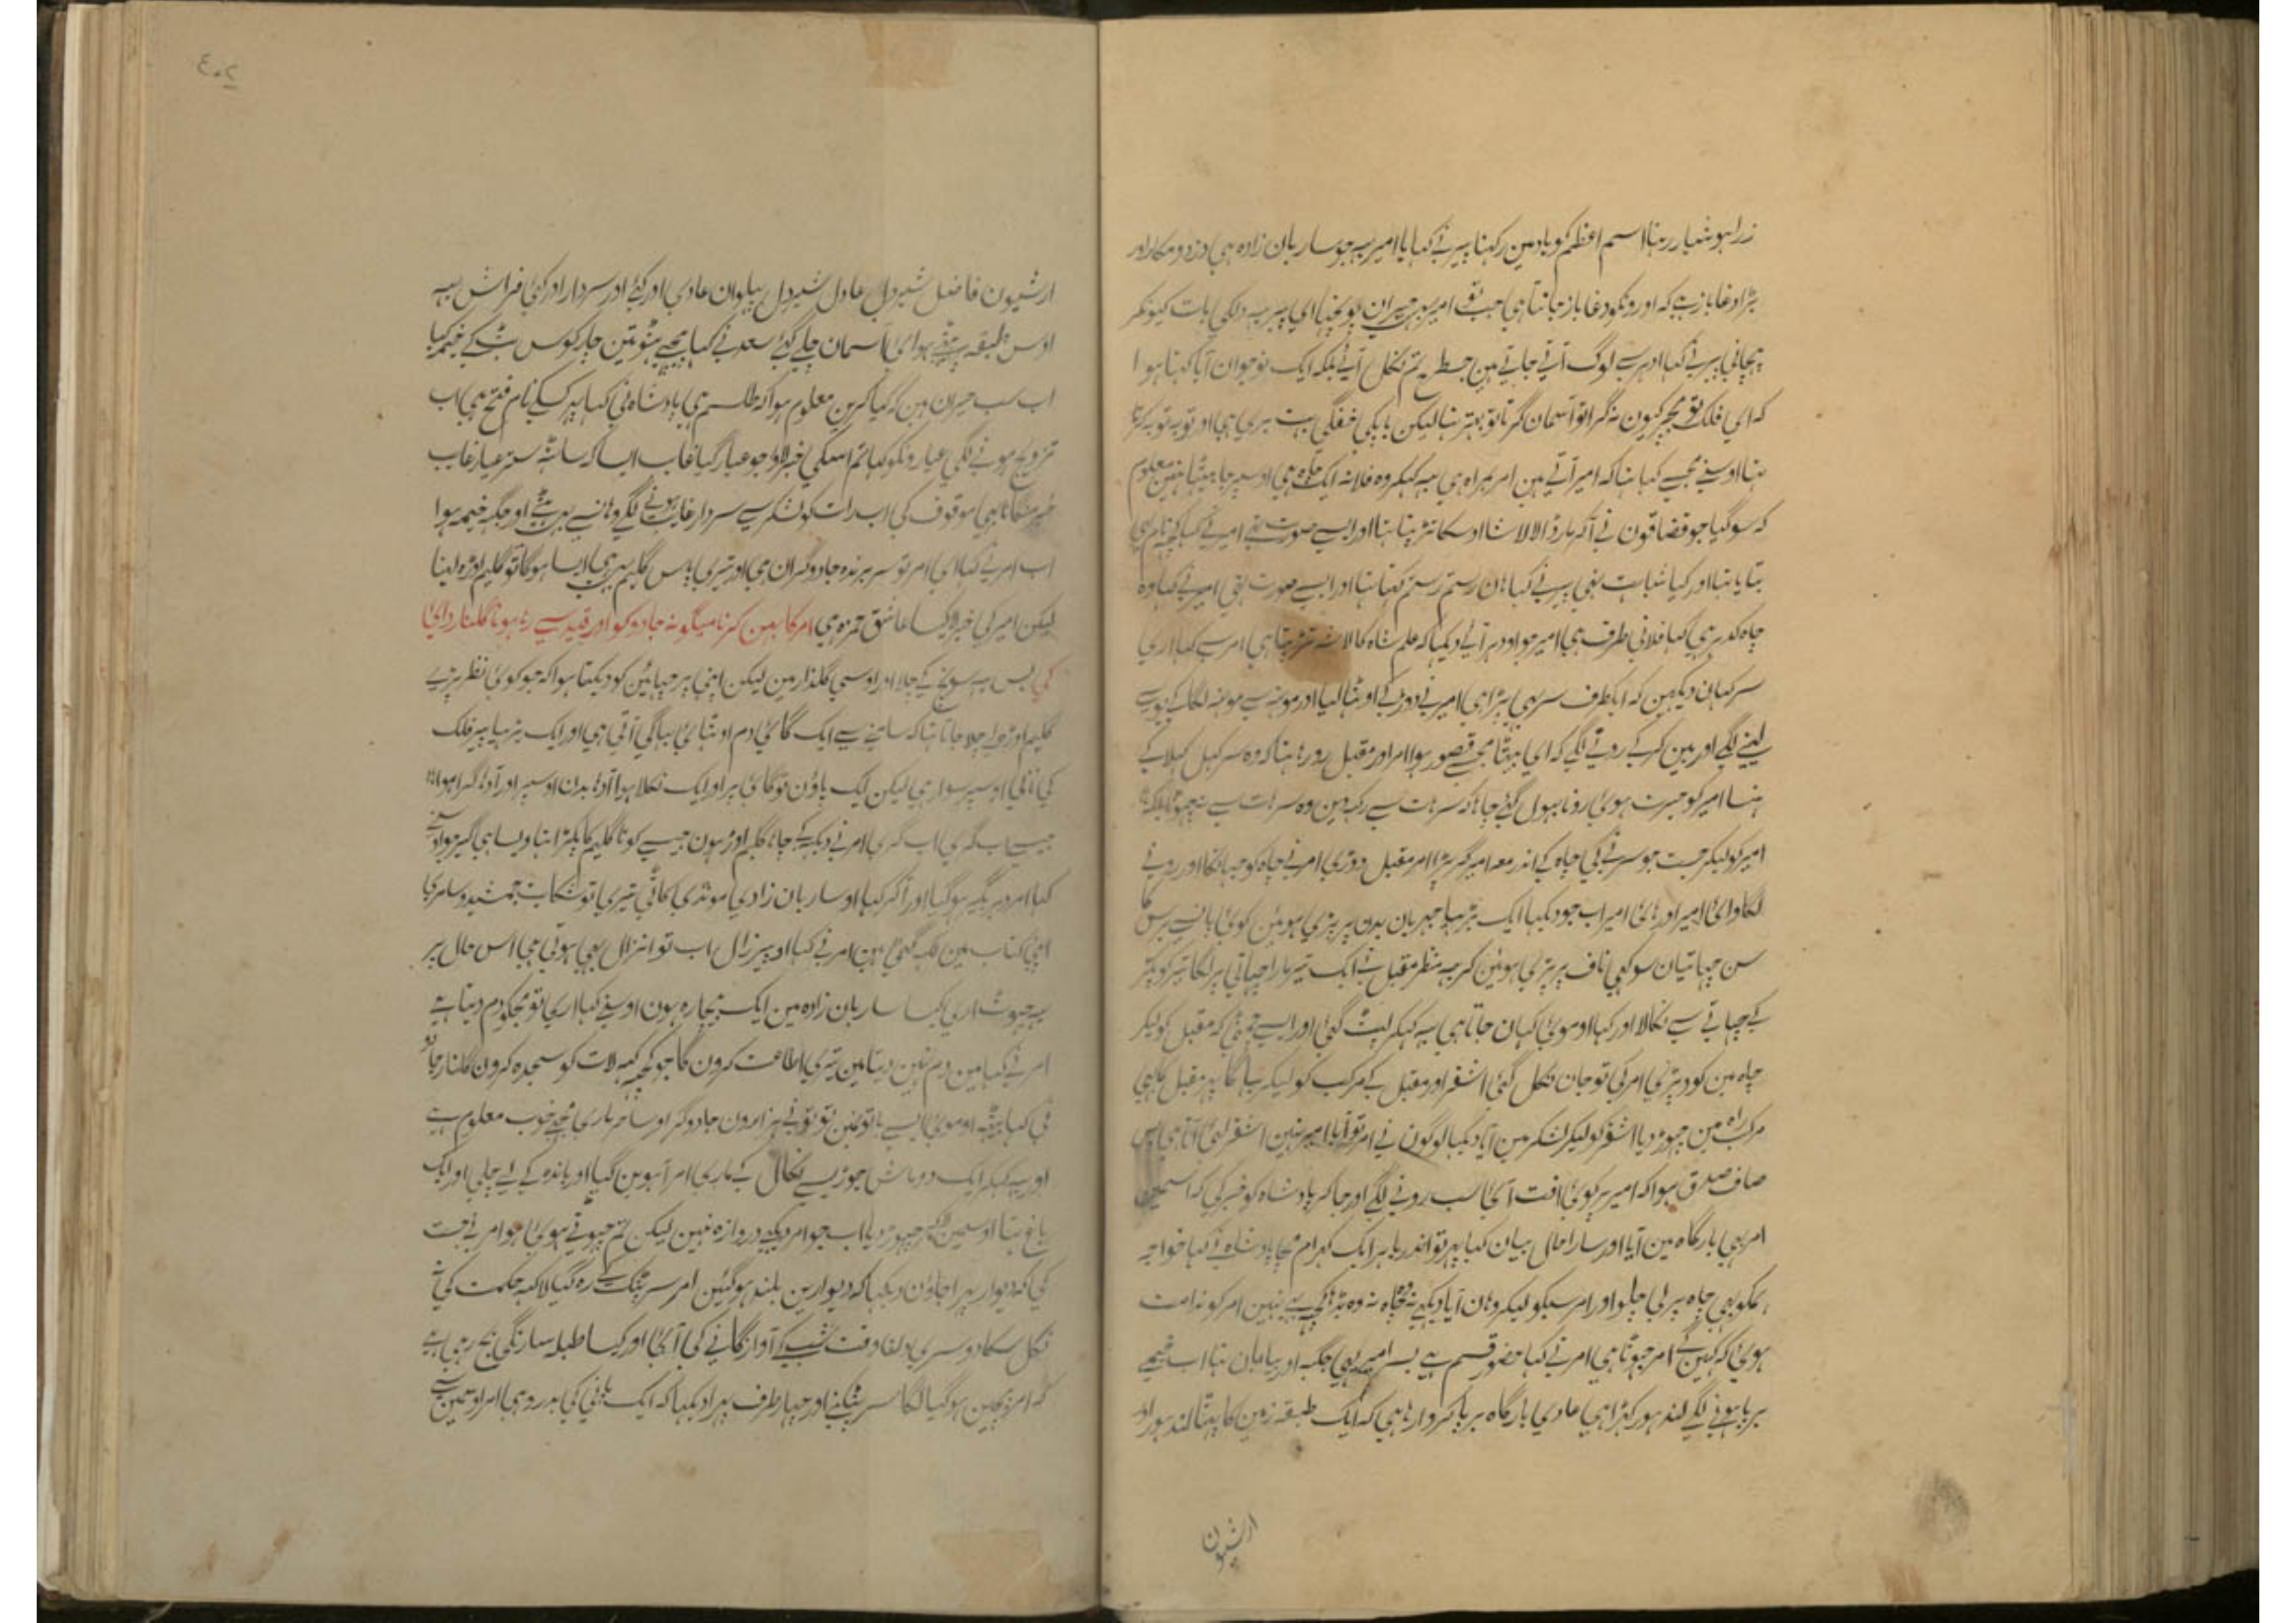 زرا ہوشیار رہنا اسم اعظم کو یاد مین رکہنا پیر نے کہا یا امیر یہ جو ساربان زادہ ہی دزد و مکار اور
بڑا دغاباز ہے کہ اورونکو دغاباز جانتا ہی جب تو امیر بہی حیران ہو پوچہا ای پیر یہ دلکی بات کیونکر
پہچانی پیر نے کہا ادہر سے لوگ آتے جاتے ہین جسطرح تم نکل آئے بلکہ ایک نوجوان آیا کہتا ہوا
کہ ای فلک تو مجہپر کیون نہ گرا تو آسمان گرتا تو بہتر تہا لیکن باپکی خفگی بہت بری ہی اور توبہ توبہ کرتا
تہا اوسنے مجہسے کہا تہا کہ امیر آتے ہین امر ہمراہ ہی یہ کہکر وہ فلانہ ایک چاہ ہی اوسپر جا بیٹہا نہین معلوم
کہ سو گیا جو قضاقون نے آکر مار ڈالا لاشا اوسکا تڑپتا تہا اور ایسے صورت تہی امیر نے کہا کچہ نام بہی
بتایا تہا اور کیا شباہت تہی پیر نے کہا ہان رستم رستم کہتا تہا اور ایسے صورت تہی امیر نے کہا وہ
چاہ کدہر ہی کہا فلانی طرف ہی امیر جو اودہر آئے دیکہا کہ علم شاہ کا لاشہ تڑپتا ہی امر سے کہا اری
سر کہان دیکہین کہ ایکطرف سر بہی پڑا ہی امیر نے دوڑ کے اوٹہا لیا اور مونہہ سے مونہہ لگا کے بوسے
لینے لگے اور بین کر کے رونے لگے کہ ای بیٹا مجہسے قصور ہوا امر اور مقبل رو رہا تہا کہ وہ سر کہل کہلا کے
ہنسا امیر کو حیرت ہوئی رونا بہول گئے چاہا کہ سر ہات سے رکہدین وہ سر ہات سے نہ چہوٹا بلکہ
امیر کو لیکر جست جو سر نے کی چاہ کے اندر معہ امیر گر پڑا امر مقبل دوڑی امر نے چاہ کو جہانکا اور رونے
لگا وای امیر اور ہای امیر اب جو دیکہا ایک بڑہیا جہریان بدن پر پڑی ہوئین کوئی پانسے برس کا
سن چہاتیان سوکہی ناف پر پڑی ہوئین کریہہ منظر مقبل نے ایک تیر مارا چہاتی پر لگا تیر کو پکڑ
کے چہاتے سے نکالا اور کہا او موئے کہان جاتا ہی یہ کہکر لپٹ گئی اور ایسے چمٹی کہ مقبل کو لیکر
چاہ مین کود پڑی امر کی تو جان نکل گئی اشقر اور مقبل کے مرکب کو لیکر بہاگا پہر مقبل کا بہی
مرکب راہ مین چہوڑ دیا اشقر کو لیکر لشکر مین آیا دیکہا لوگون نے امر تو آیا امیر نہین اشقر لئے آتا ہی پس
صاف صدق ہوا کہ امیر پر کوئی افت آئی سب رونے لگے اور جا کر بادشاہ کو خبر کی کہ اسمین
امر بہی بارگاہ مین آیا اور سارا حال بیان کیا پہر تو اندر باہر ایک کہرام مچا بادشاہ نے کہا خواجہ
ہمکو بہی چاہ پر لی چلو اور امر سبکو لیکر وہان آیا دیکہے نہ وہ چاہ نہ وہ بڈہا کچہ بہی نہین امر کو ندامت
ہوئی کہ کہین گے امر جہوٹا ہی امر نے کہا حضور قسم ہے بسر امیر یہی جگہ اور بیابان تہا اب خیمے
برپا ہونے لگے لندہور کہڑا ہی عادی بارگاہ برپا کروا رہا ہی کہ ایک طبقہ زمین کا پہٹا لندہور اور
ارشیون
ارشیون فاضل شیردل عادل شیردل پہلوان عادی اور کئے اور سردار اور کئی فراش یہہ
اوس طبقہ پہ تہے ہوا ی آسمان چلے گئے سعد نے کہا پیچہے ہٹو تین چار کوس ہٹ کے خیمہ کیا
اب سب حیران ہین کہ کیا کرین معلوم ہوا کہ طلسم ہی بادشاہ نی کہا یہ کسکے نام فتح ہی اب
تزویج ہونے لگی عیارونکو کہا تم اسکی خبر لاؤ جو عیار گیا غایب ایسا کہ ساٹہہ ستر عیار غایب
خبر منگانا بہی موقوف کی اب رات کو لشکر سے سردار غایب ہونے لگے وہانسے پہر ہٹے اور جگہ خیمہ ہوا
اب امر نے کہا ای امر تو سربرندہ جادوگران ہی اور تیری پاس گلیم بہی ایسا ہوگا تو گلیم اوڑہ لینا
لیکن امیر کی خبر لا کیسا عاشق حمزہ ہی امر کا بہن کرنا میگونہ جادو کو اور قید سے رہا ہونا گلنار دائی
کی بس یہ سونچ کے چلا اور اوسی گلذار مین لیکن اپنی پرچہائین کو دیکہتا ہوا کہ جو کوئی نظر پڑے
گلیم اوڑہ لے چلا جاتا تہا کہ سامنے سے ایک گائی دم اوٹہائے بہاگی آتی ہی اور ایک بڑہیا پیر فلک
کی نانی اوسپر سوار ہی لیکن ایک پاؤن تو گائی پر اور ایک نکلا ہوا آدہا بدن اوسپر اور آدہا گرا ہوا
جیسے اب گری اب گری امر نے دیکہہ کے چاہا گلیم اوڑہون جیسے کونا گلیم کا پکڑا تہا ویسا ہی گیر جو اوسنے
کہا امر دیر بگیر ہو گیا اور آکر کہا او ساربان زادی مونڈی کاٹی تیری تو شکایت جمشید و سامری
اپنی کتاب مین لکہہ گئی ہین امر نے کہا او پیر زال اب تو انزال بہی ہوتی ہی اس حال پر
یہ جہوٹ اری کیسا ساربان زادہ مین ایک بیچارہ ہون اوسنے کہا اری تو مجکو دم دیتا ہے
امر نے کہا مین دم نہین دیتا مین تیری اطاعت کرون گا جو کچہہ کہہ لات کو سجدہ کرون گلنار جادو
نی کہا بہتیہ او موئی ایسے باتونمین تو تونے ہزارون جادوگر اور ساحر ماری مجہے خوب معلوم ہے
اور یہ کہکر ایک دو ماش جوڑیسے نکال کے ماری امر آہو بن گیا اور باندہ کے لے چلی اور ایک
باغ تہا اوسمین لاکے چہوڑ دیا اب جو امر دیکہے دروازہ نہین لیکن تم چہوٹے ہوئی ہو امر نے جست
کی کہ دیوار پہرا جاؤن دیکہا کہ دیوارین بلند ہو گئین امر سر پٹک کے رہ گیا لاکہہ حکمت کی نہ
نکل سکا دوسری دفعا وقت شب کے آواز گانے کی آئی اور کیسا طبلہ سارنگی بج رہی ہے
کہ امر بیچین ہو گیا لگا سر پٹکنے اور چہار طرف پہرا دیکہا کہ ایک پانی کی بدرو ہی امر اوسمین سے